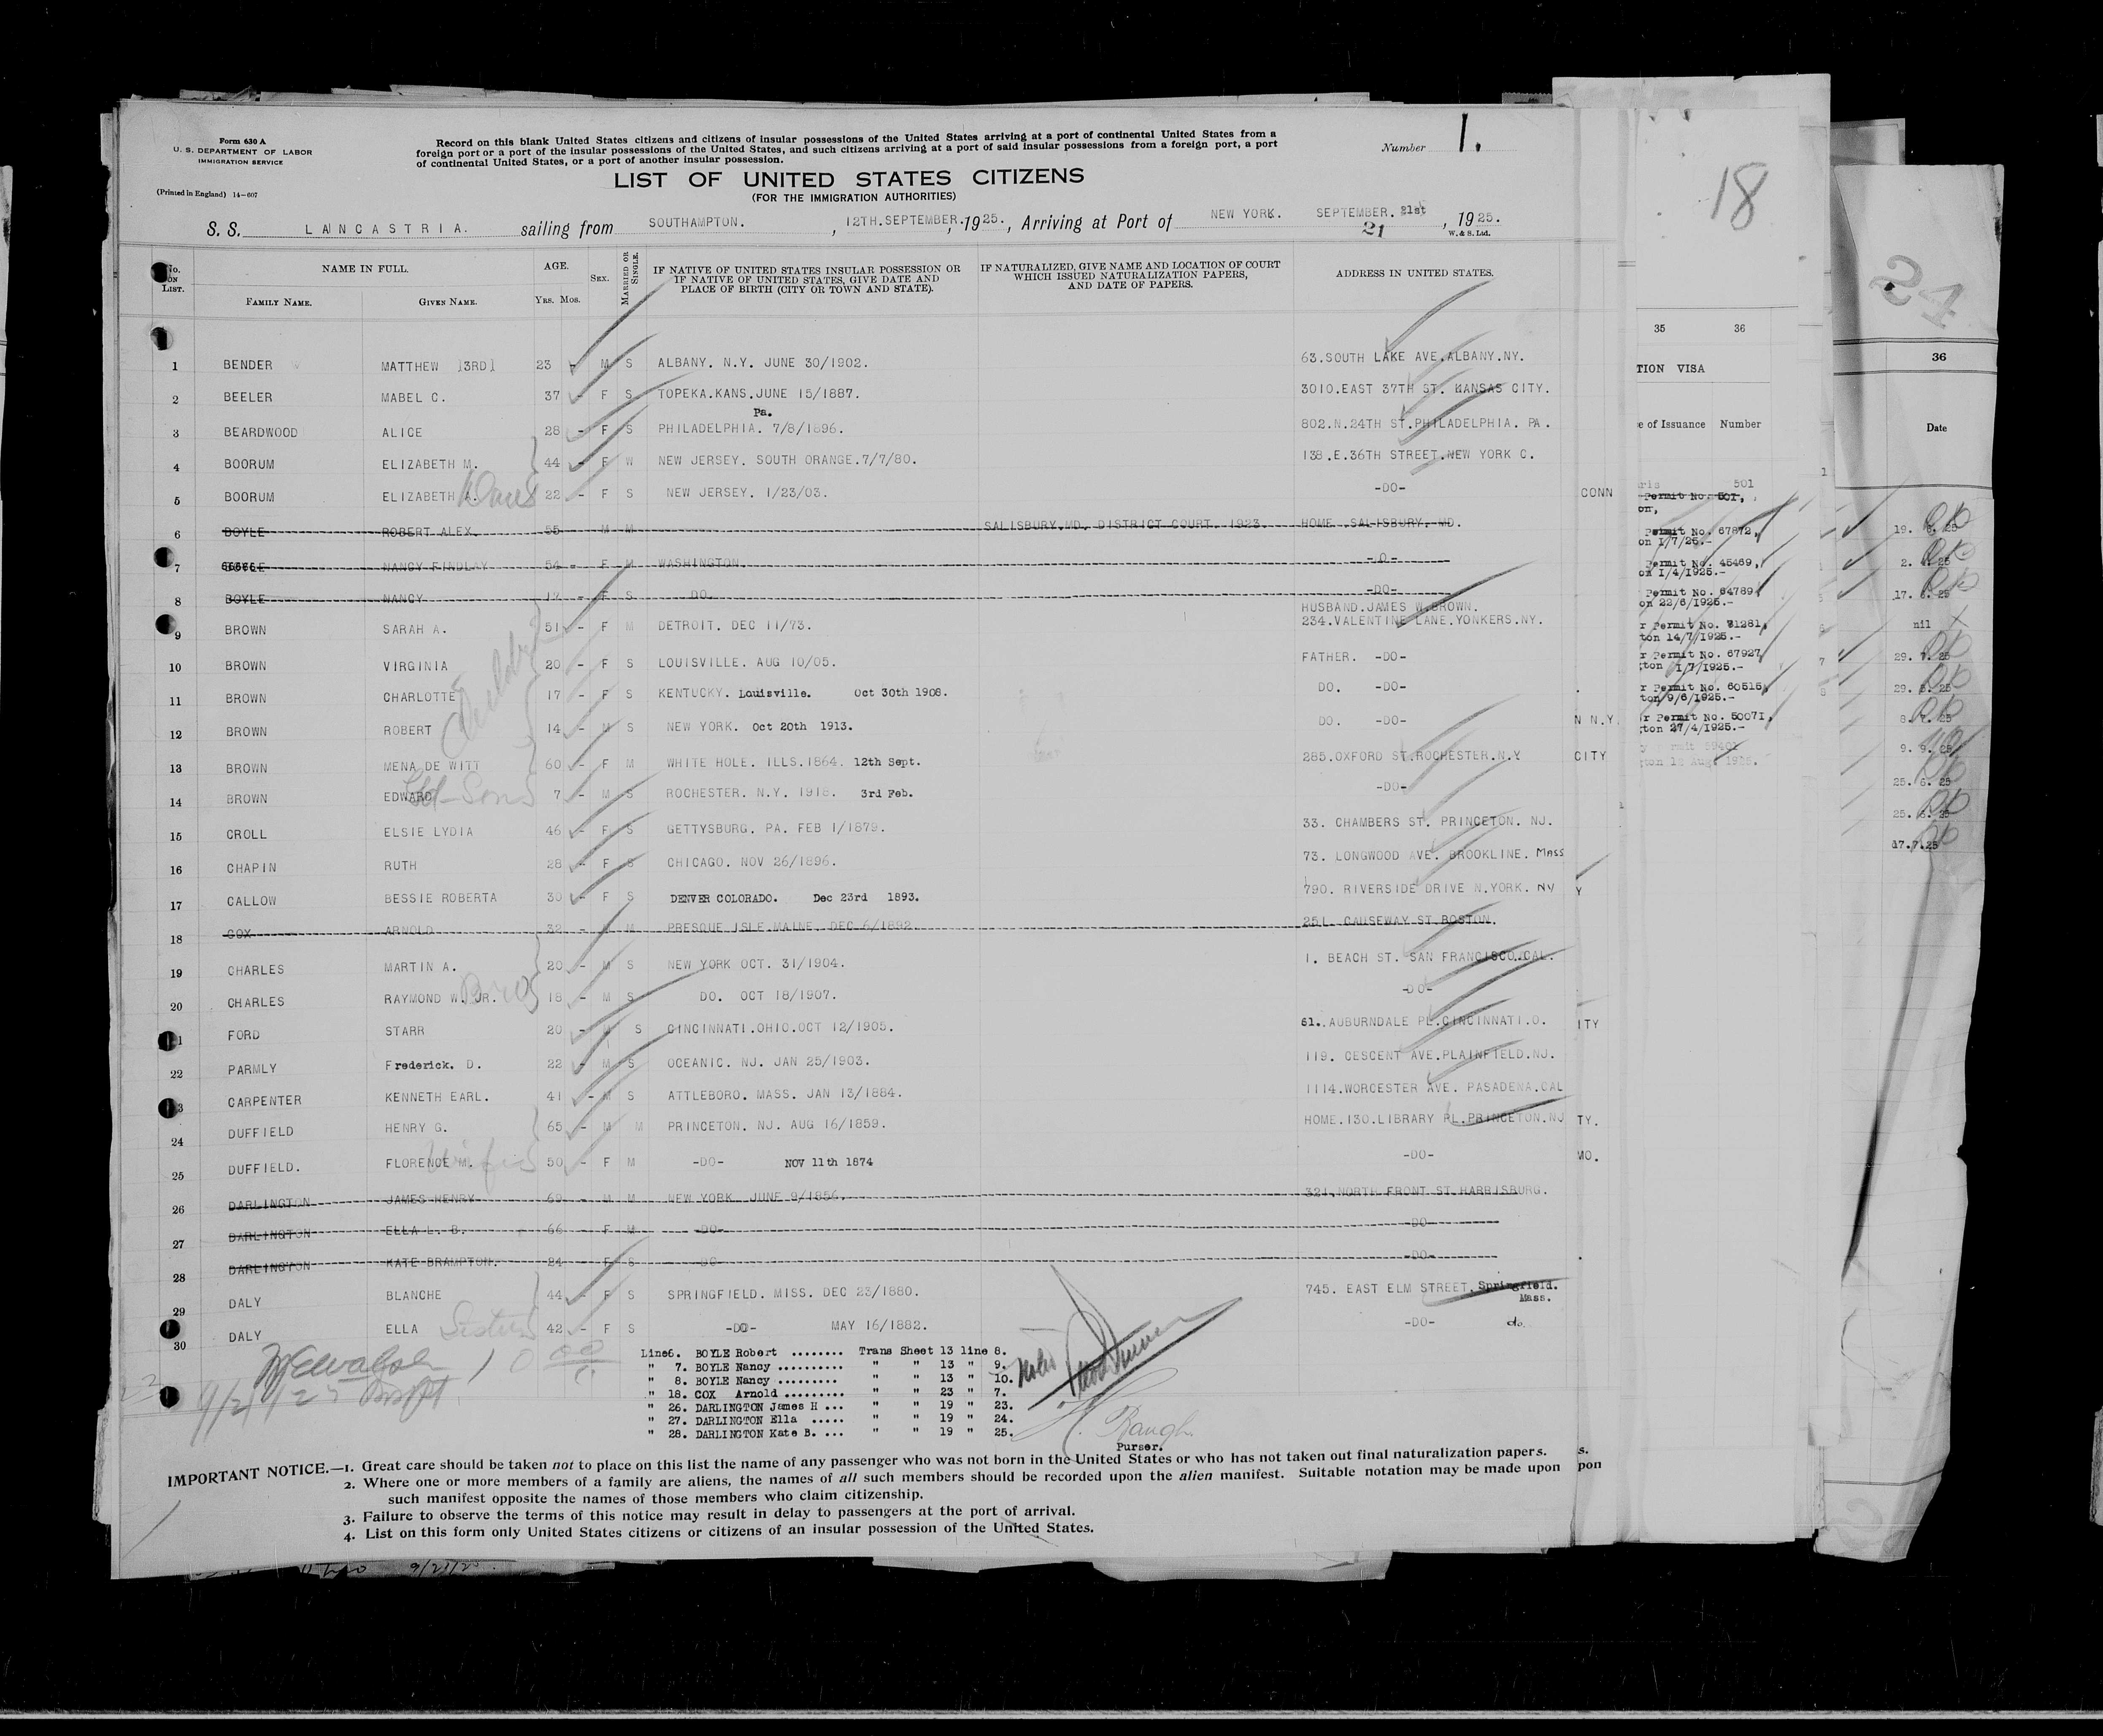 Form 630 A
U. S. DEPARTMENT OF LABOR
IMMIGRATION SERVICE
(Printed in England) 14-607
Record on this blank United States citizens and citizens of insular possessions of the United States arriving at a port of continental United States from a
foreign port or a port of the insular possessions of the United States, and such citizens arriving at a port of said insular possessions from a foreign port, a port
of continental United States, or a port of another insular possession.
Number 1.
LIST OF UNITED STATES CITIZENS
(FOR THE IMMIGRATION AUTHORITIES)
S. S. LANCASTRIA. sailing from SOUTHAMPTON. , 12TH.SEPTEMBER. , 1925. , Arriving at Port of NEW YORK. SEPTEMBER. 21st 21 , 1925.
W. & S. Ltd.
No. ON LIST. NAME IN FULL. FAMILY NAME. GIVEN NAME. AGE. YRS. MOS. SEX. MARRIED OR SINGLE. IF NATIVE OF UNITED STATES INSULAR POSSESSION OR IF NATIVE OF UNITED STATES, GIVE DATE AND PLACE OF BIRTH (CITY OR TOWN AND STATE). IF NATURALIZED, GIVE NAME AND LOCATION OF COURT WHICH ISSUED NATURALIZATION PAPERS, AND DATE OF PAPERS. ADDRESS IN UNITED STATES.
1 BENDER MATTHEW ]3RD] 23 - M S ALBANY. N.Y. JUNE 30/1902. 63.SOUTH LAKE AVE.ALBANY.NY.
2 BEELER MABEL C. 37 - F S TOPEKA.KANS.JUNE 15/1887. 3010.EAST 37TH ST. KANSAS CITY.
Pa.
3 BEARDWOOD ALICE 28 - F S PHILADELPHIA. 7/8/1896. 802.N.24TH ST.PHILADELPHIA. PA.
4 BOORUM ELIZABETH M. 44 - F W NEW JERSEY. SOUTH ORANGE.7/7/80. 138.E.36TH STREET.NEW YORK C.
5 BOORUM ELIZABETH A. 22 - F S NEW JERSEY. 1/23/03. -DO-
6 BOYLE ROBERT ALEX. 55 M M SALISBURY.MD. DISTRICT COURT. 1923. HOME .SALISBURY. MD.
7 BOYLE NANCY FINDLAY 54 - F M WASHINGTON. -DO-
8 BOYLE NANCY 17 - F S DO. -DO-
HUSBAND.JAMES W.BROWN.
9 BROWN SARAH A. 51 - F M DETROIT. DEC 11/73. 234.VALENTINE LANE.YONKERS.NY.
10 BROWN VIRGINIA 20 - F S LOUISVILLE. AUG 10/05. FATHER. -DO-
11 BROWN CHARLOTTE 17 - F S KENTUCKY. Louisville. Oct 30th 1908. DO. -DO-
12 BROWN ROBERT 14 - M S NEW YORK. Oct 20th 1913. DO. -DO-
Children
13 BROWN MENA DE WITT 60 - F M WHITE HOLE. ILLS.1864. 12th Sept. 285.OXFORD ST.ROCHESTER.N.Y
14 BROWN EDWARD 7 - M S ROCHESTER. N.Y. 1918. 3rd Feb. -DO-
15 CROLL ELSIE LYDIA 46 - F S GETTYSBURG. PA. FEB 1/1879. 33. CHAMBERS ST. PRINCETON. NJ.
16 CHAPIN RUTH 28 - F S CHICAGO. NOV 26/1896. 73. LONGWOOD AVE. BROOKLINE. Mass
17 CALLOW BESSIE ROBERTA 30 - F S DENVER COLORADO. Dec 23rd 1893. 790. RIVERSIDE DRIVE N.YORK. NY
18 COX ARNOLD 32 - M M PRESQUE ISLE.MAINE. DEC 6/1892. 251. CAUSEWAY ST.BOSTON.
19 CHARLES MARTIN A. 20 - M S NEW YORK OCT. 31/1904. 1. BEACH ST. SAN FRANCISCO.CAL.
20 CHARLES RAYMOND W. JR. Bro 18 - M S DO. OCT 18/1907. -DO-
FORD STARR 20 - M S CINCINNATI.OHIO.OCT 12/1905. 61. AUBURNDALE PL.CINCINNATI.O.
22 PARMLY Frederick. D. 22 - M S OCEANIC. NJ. JAN 25/1903. 119. CESCENT AVE.PLAINFIELD.NJ.
CARPENTER KENNETH EARL. 41 - M S ATTLEBORO. MASS. JAN 13/1884. 1114.WORCESTER AVE. PASADENA.CAL
24 DUFFIELD HENRY G. 65 - M M PRINCETON. NJ. AUG 16/1859. HOME.130.LIBRARY PL.PRINCETON.NJ
25 DUFFIELD. FLORENCE M. Wife 50 - F M -DO- NOV 11th 1874 -DO-
26 DARLINGTON JAMES HENRY 69 - M M NEW YORK JUNE 9/1856. 321.NORTH FRONT ST.HARRISBURG.
27 DARLINGTON ELLA L. B. 66 - F M -DO- -DO-
28 DARLINGTON KATE BRAMPTON. 24 - F S DO -DO-
29 DALY BLANCHE 44 - F S SPRINGFIELD. MISS. DEC 23/1880. 745. EAST ELM STREET. Springfield. Mass.
30 DALY ELLA Sister 42 - F S -DO- MAY 16/1882. -DO- do.
Line6. BOYLE Robert ........ Trans Sheet 13 line 8.
" 7. BOYLE Nancy .......... " " 13 " 9.
" 8. BOYLE Nancy ......... " " 13 " 10.
" 18. COX Arnold ......... " " 23 " 7.
" 26. DARLINGTON James H ... " " 19 " 23.
" 27. DARLINGTON Ella ..... " " 19 " 24.
" 28. DARLINGTON Kate B. ... " " 19 " 25.
Purser.
IMPORTANT NOTICE.—1. Great care should be taken not to place on this list the name of any passenger who was not born in the United States or who has not taken out final naturalization papers.
2. Where one or more members of a family are aliens, the names of all such members should be recorded upon the alien manifest. Suitable notation may be made upon
such manifest opposite the names of those members who claim citizenship.
3. Failure to observe the terms of this notice may result in delay to passengers at the port of arrival.
4. List on this form only United States citizens or citizens of an insular possession of the United States.
CONN
N N.Y.
CITY
Y
ITY
TY.
MO.
s.
pon
18
35 36
TION VISA
e of Issuance Number
501
Permit No. 501,
on,
Permit No. 67872,
on 1/7/25.-
Permit No. 45469,
on 1/4/1925.-
Permit No. 64789,
on 22/6/1925.-
r Permit No. 71281,
ton 14/7/1925.-
r Permit No. 67927
ton 1/7/1925.-
r Permit No. 60515,
ton 9/6/1925.-
r Permit No. 50071,
ton 27/4/1925.-
24
36
Date
19. 8. 25
2. 4. 25
17. 6. 25
nil
29. 7. 25
29. 8. 25
8. 7. 25
9. 9. 25
25. 6. 25
25. 6. 25
17.7.25